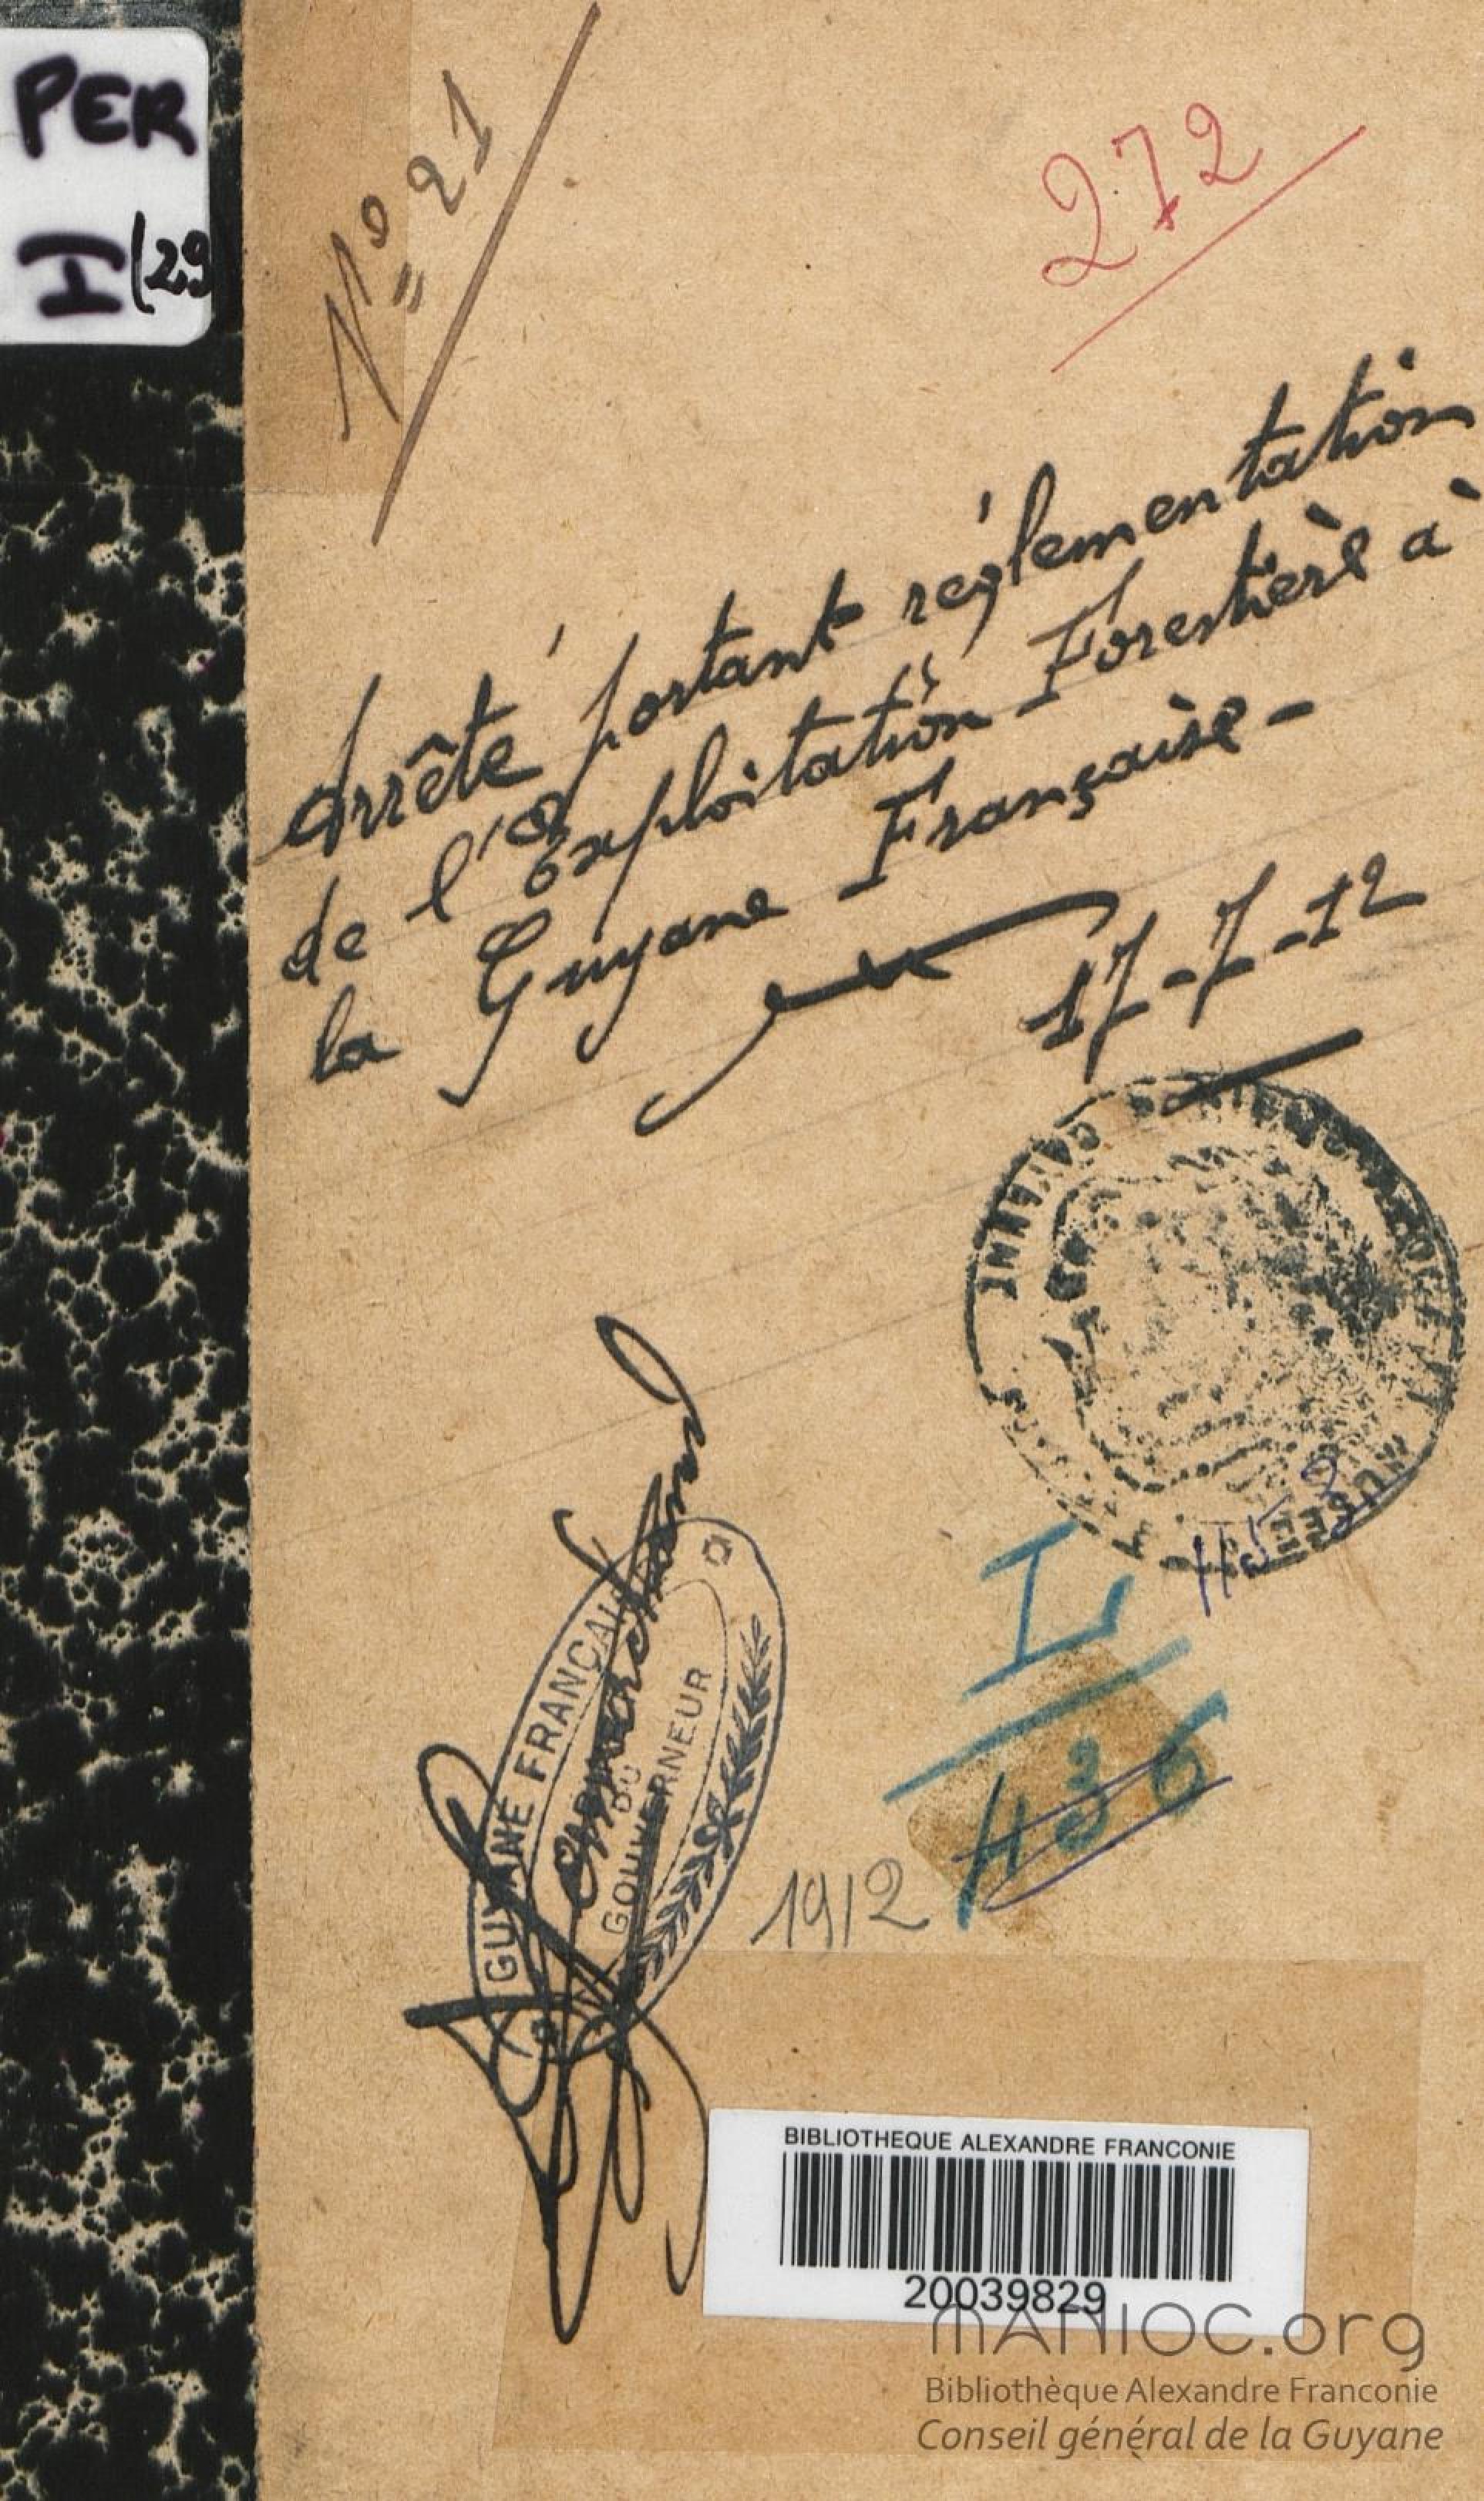 PER
I (29
Nº 21
272
Arrêté portant réglementation
de l'Exploitation Forestière à
la Guyane Française -
17-7-12
GUYANE FRANÇAISE
CABINET
DU
GOUVERNEUR
L
436
1912
BIBLIOTHEQUE ALEXANDRE FRANCONIE
20039829
MANIOC.org
Bibliothèque Alexandre Franconie
Conseil général de la Guyane